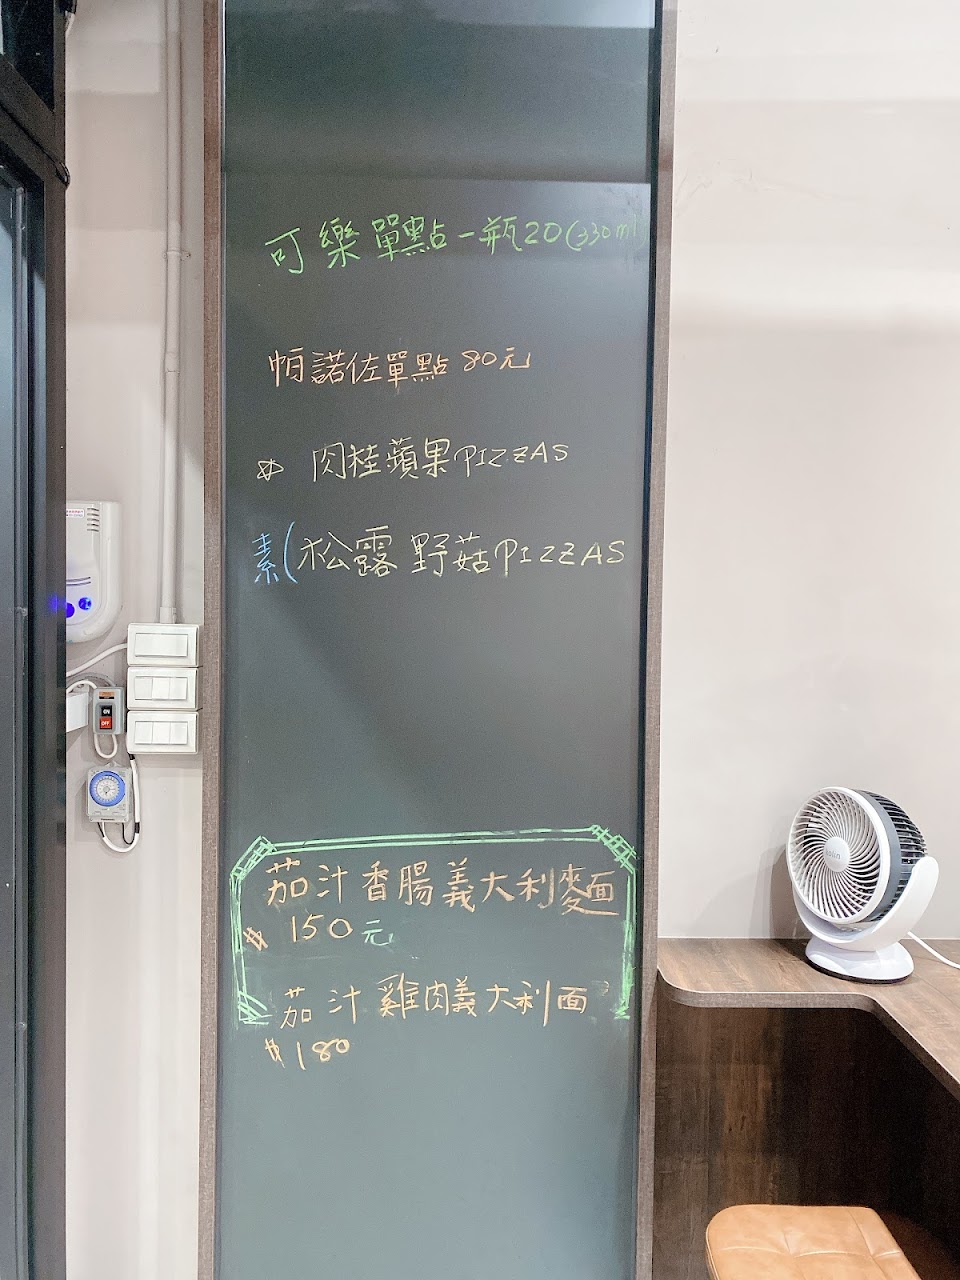 可樂單點一瓶20(330ml)
帕諾佐單點 80元
肉桂蘋果PIZZAS
素(松露野菇PIZZAS
茄汁香腸義大利麵
$150元
茄汁雞肉義大利面
$180
ON
OFF